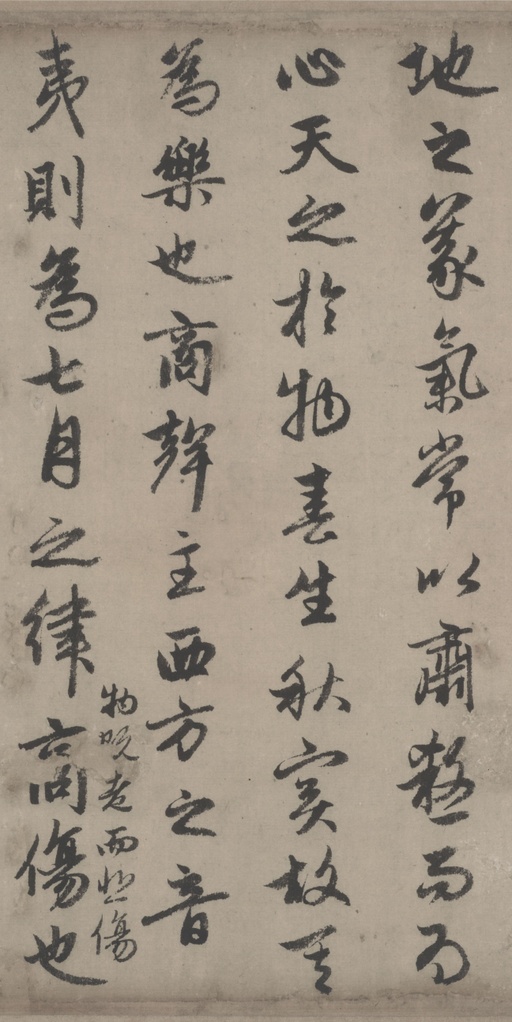 地之義氣常以肅殺而為
心天之於物春生秋實故其
為樂也商聲主西方之音
夷則為七月之律商傷也
物既老而悲傷